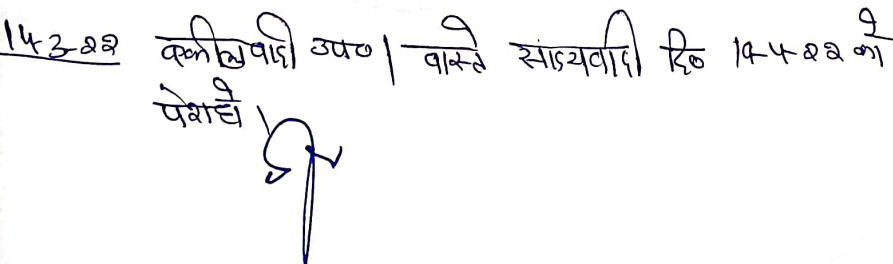 14-3-22 वकील वादी उप० । वास्ते साक्ष्य वादी दि० 19-4-22 को
पेश हो ।